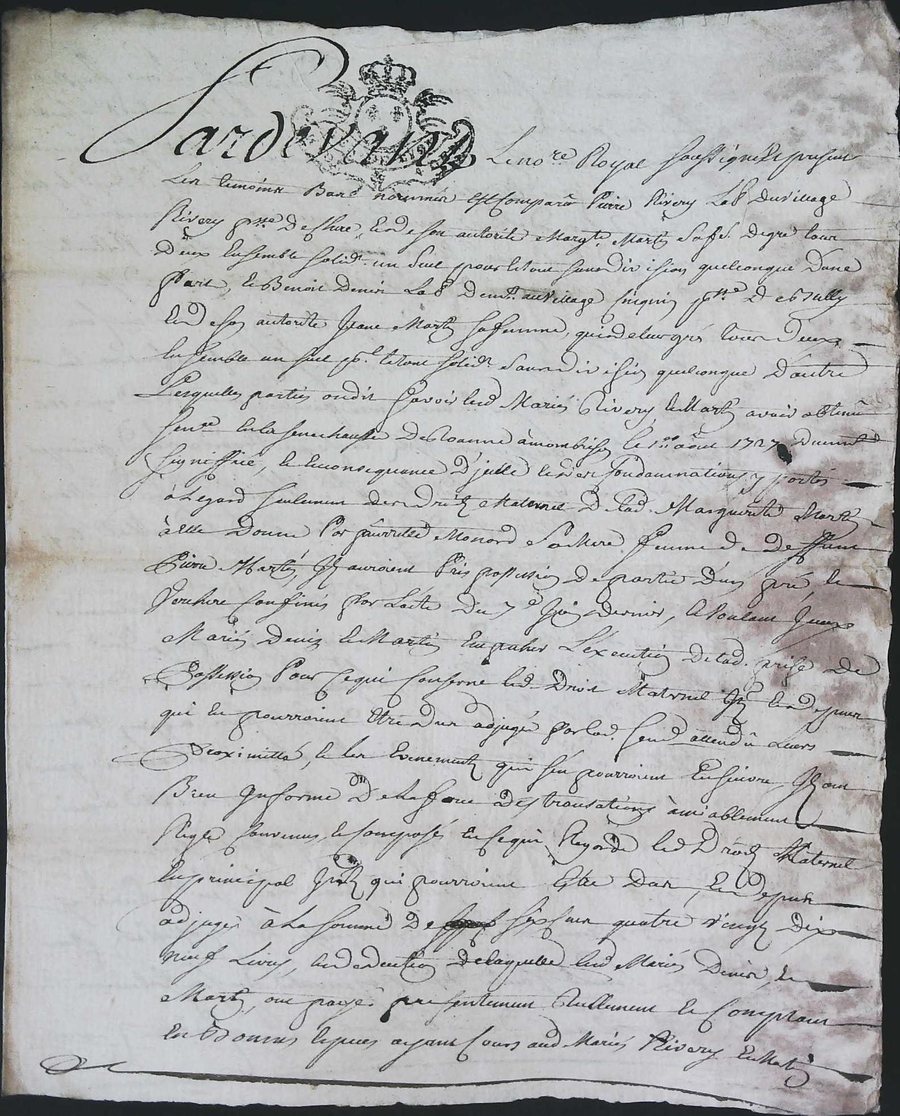 Pardevant Le no.re Royal soussigné Et present
Les temoins Bas nommés Est Comparû Pierre Rivery Lab.r Du village
Rivery p.sse de Et de son autorité Marg.te Martin sa fe. de gré tous
Deux Ensemble solid.t un seul pour le tout sans division quelconque D'une
Part, Et Benoit Denis Lab.r Dem.t au village p.sse De Bully
Et de son autorité Jeane Martin sa femme, qui de leur gré tous Deux
Ensemble un seul p.r le tout solid.t sans division quelconque D'autre
Lesquelles parties ont dit sçavoir led. Mariés Rivery et Martin avoir obtenû
sen.ce En la senechaussé de Roanne le aoust 1727 Duement
signiffiée, Et En consequance D'jcelle et des Condamnations y portés
à L'egard seulement des Droits Maternel De lad. Marguerite Martin
à Elle Donné Par sa Mere femme de Deffunt
Pierre Martin, Jls auroient Pris possession De partie D'un pré, Et
Verchere Confinés par L'acte Du 7.e Juin dernier, Et voulant Jceux
Mariés Denis et Martin Empecher L'exécution De lad. prise De
Possession Pour Ce qui Conserne led. Droit Maternel Jnt. Et depens
qui En pourroient Etre Dus adjugés par lad. sen.ce attendû Leurs
Proximittés, et les Evenements qui s'en pourroient Ensuivre, Jls ont
Bien Jnformé De La force Des transations à miablement
Reglé Convenus, et Composés En Ce qui Regarde led. Droits Maternel
En principal Jnts. qui pourroient Etre Dus, Et Depens
adjugés à La somme De six cens quatre vingt dix
neuf Livres, En deduction De laquelle led. Mariés Denis, Et
Martin, ont payés presentement Réellement Et Comptant
En Bonnes Especes ayant Cours aud. Mariés Rivery Et Martin